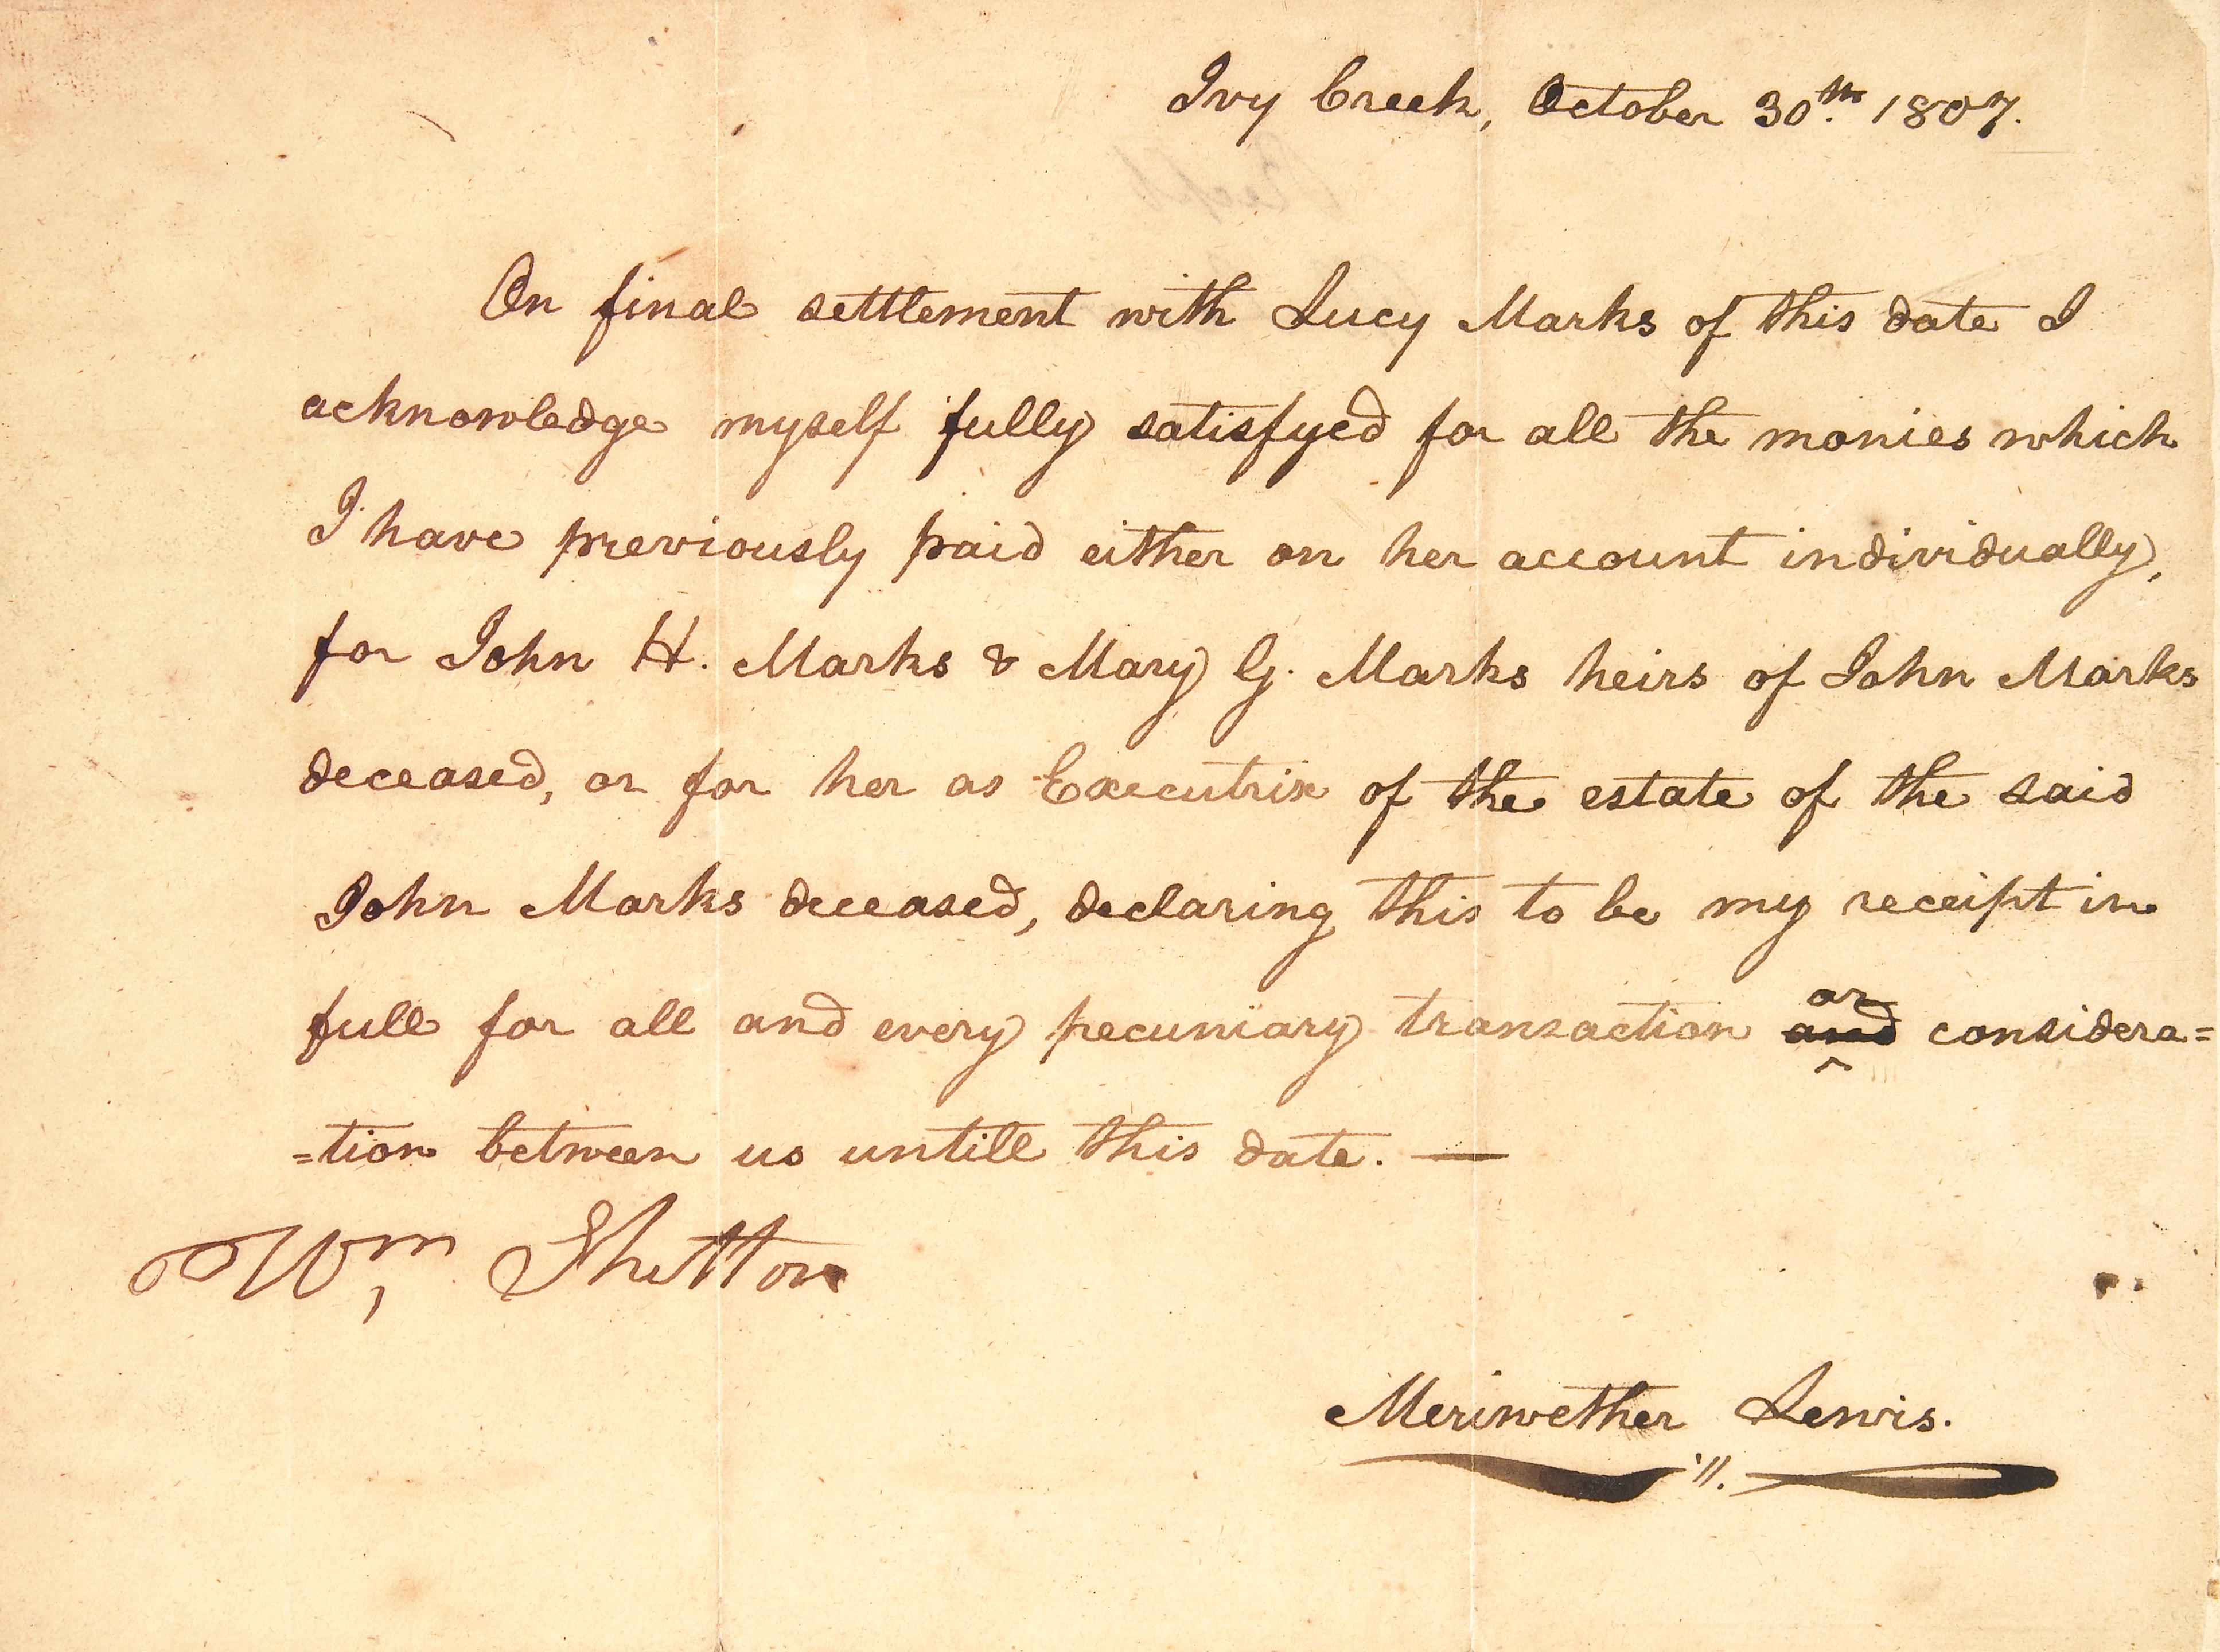 Ivy Creek, October 30th. 1807.
On final settlement with Lucy Marks of this date I
acknowledge myself fully satisfyed for all the monies which
I have previously paid either on her account individually,
for John H. Marks & Mary G. Marks heirs of John Marks
deceased, or for her as Executrix of the estate of the said
John Marks deceased, declaring this to be my receipt in
full for all and every pecuniary transaction and or considera=
=tion between us untill this date. —
Wm, Shelton
Meriwether Lewis.